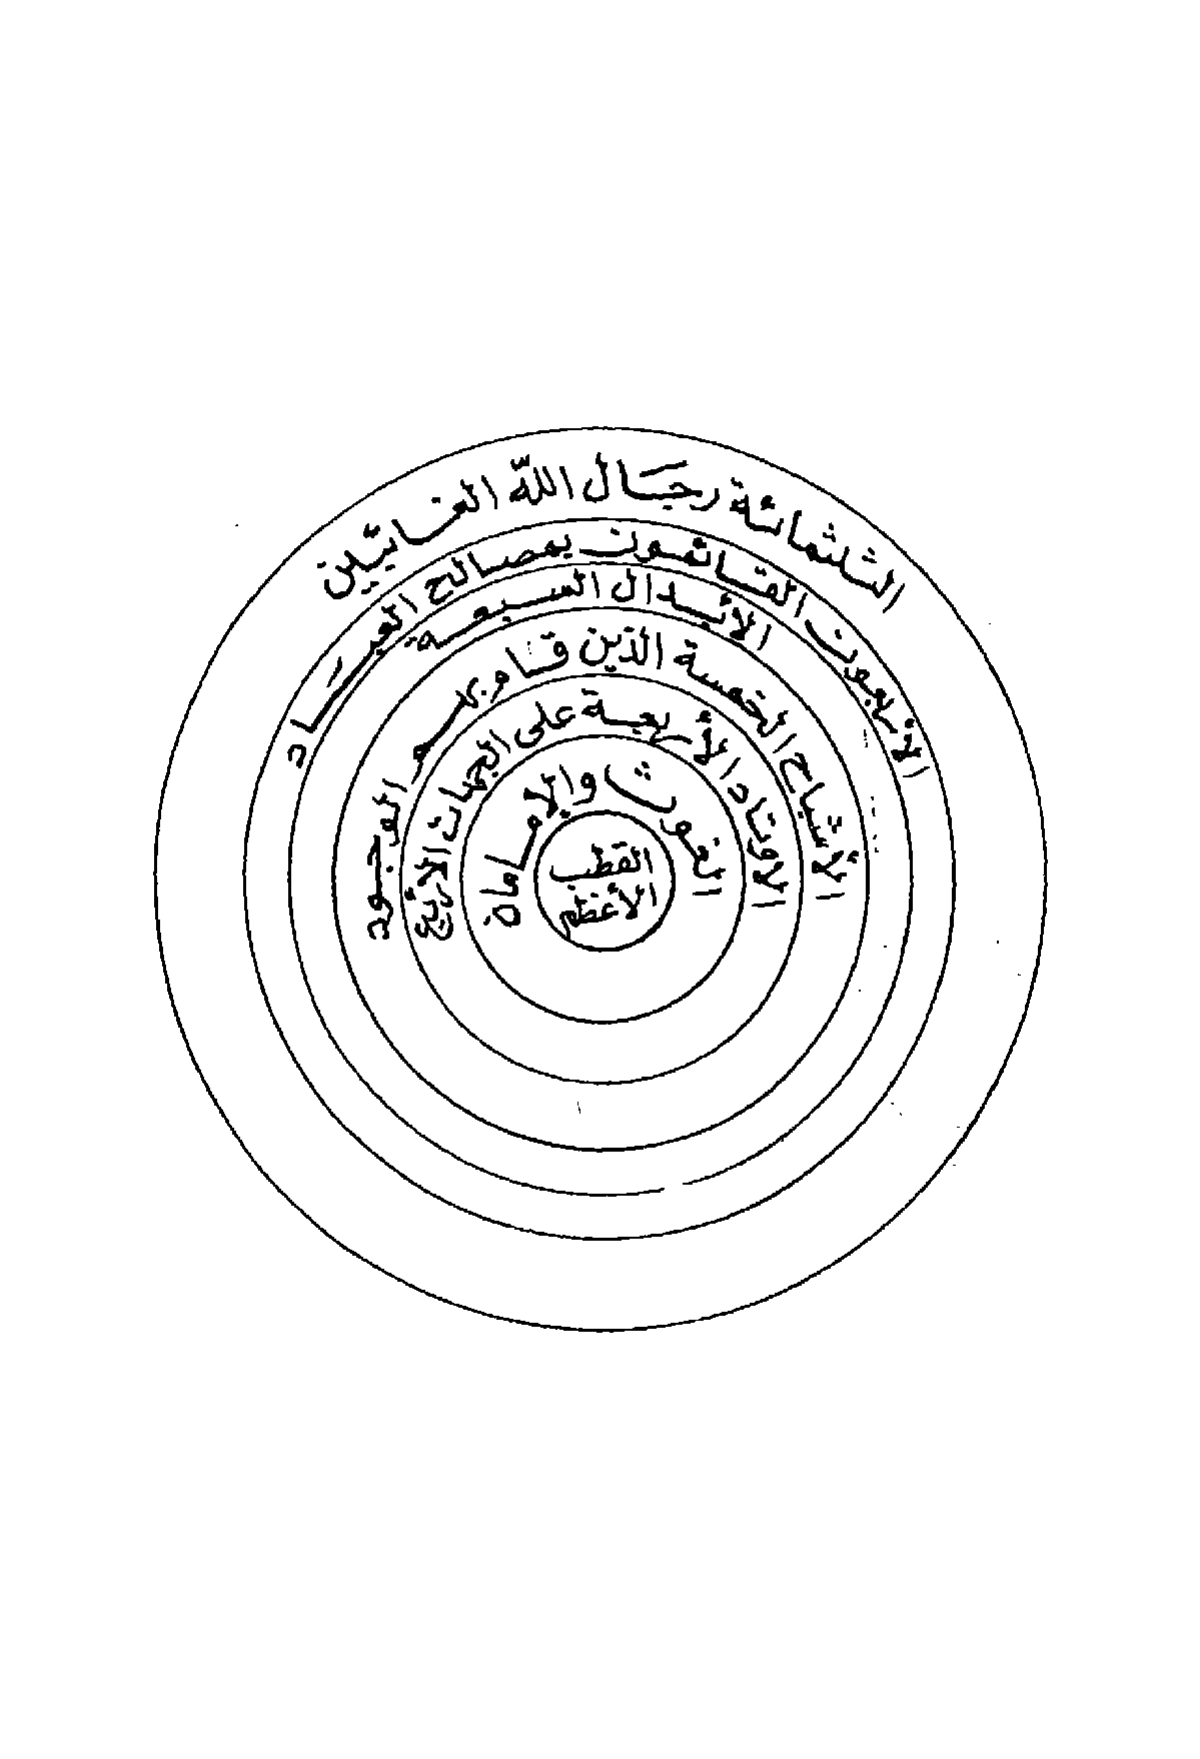 الثلثمائة رجال الله الغائبين
الأربعون القائمون بمصالح العباد
الابدال السبعة
الأشباح الخمسة الذين قام بهم الوجود
الاوتاد الأربعة على الجهات الاربع
الغوث والإمامان
القطب
الأعظم